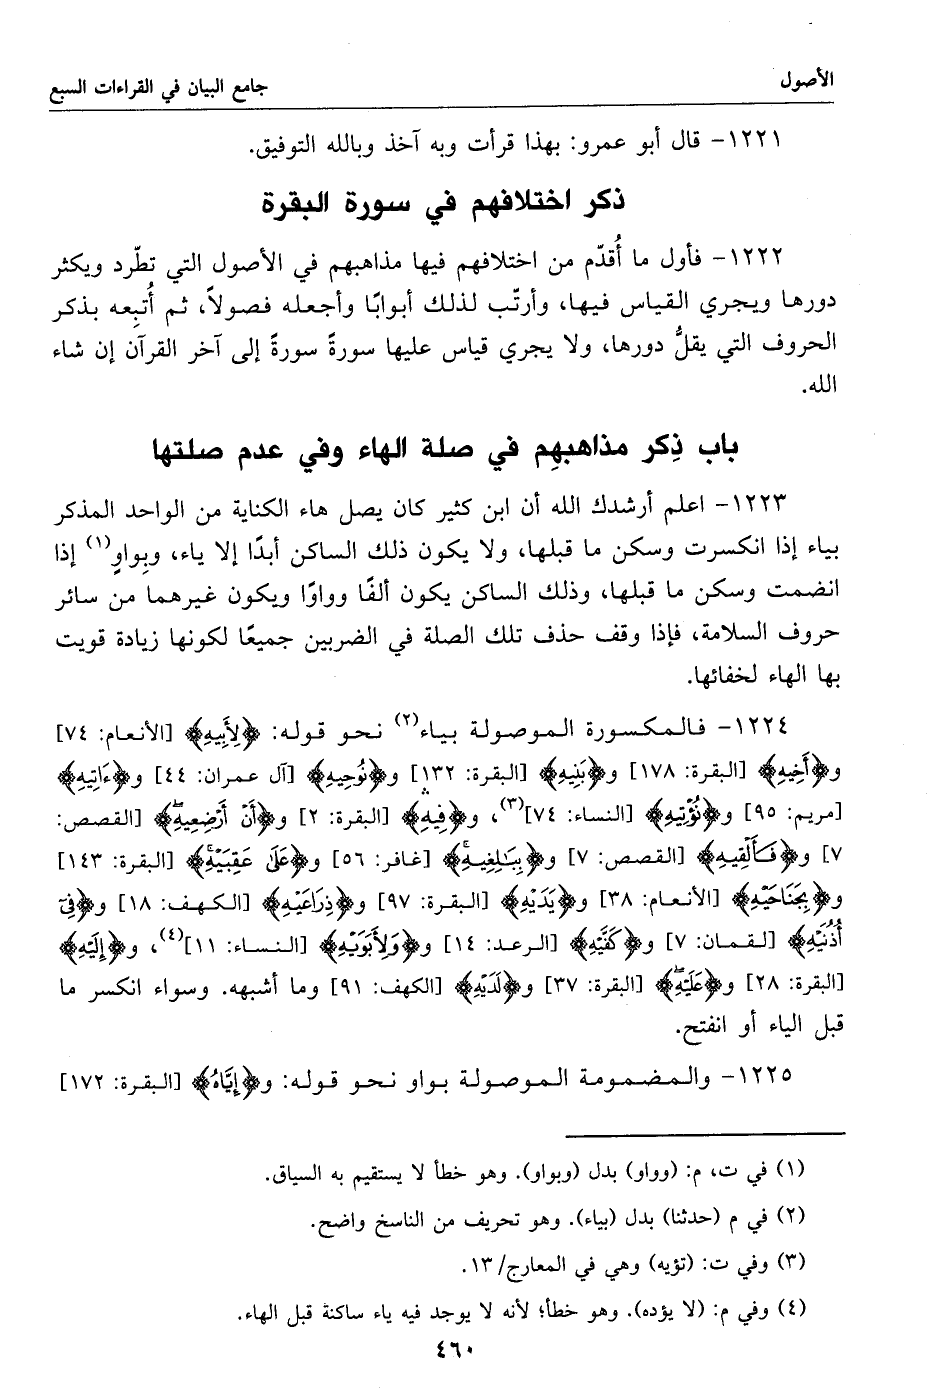 الأصول
جامع البيان في القراءات السبع
١٢٢١- قال أبو عمرو: بهذا قرأت وبه آخذ وبالله التوفيق.
ذكر اختلافهم في سورة البقرة
١٢٢٢- فأول ما أُقدّم من اختلافهم فيها مذاهبهم في الأصول التي تطّرد ويكثر
دورها ويجري القياس فيها، وأرتّب لذلك أبوابًا وأجعله فصولاً، ثم أُتبِعه بذكر
الحروف التي يقلُّ دورها، ولا يجري قياس عليها سورةً سورةً إلى آخر القرآن إن شاء
الله.
باب ذِكر مذاهبهِم في صلة الهاء وفي عدم صلتها
١٢٢٣- اعلم أرشدك الله أن ابن كثير كان يصل هاء الكناية من الواحد المذكر
بياء إذا انكسرت وسكن ما قبلها، ولا يكون ذلك الساكن أبدًا إلا ياء، وبِواوٍ(١) إذا
انضمت وسكن ما قبلها، وذلك الساكن يكون ألفًا وواوًا ويكون غيرهما من سائر
حروف السلامة، فإذا وقف حذف تلك الصلة في الضربين جميعًا لكونها زيادة قويت
بها الهاء لخفائها.
١٢٢٤- فالمكسورة الموصولة بياء(٢) نحو قوله: ﴿لِأَبِيهِ﴾ [الأنعام: ٧٤]
و﴿أَخِيهِ﴾ [البقرة: ١٧٨] و﴿بَنِيهِ﴾ [البقرة: ١٣٢] و﴿نُوحِيهِ﴾ [آل عمران: ٤٤] و﴿ءَاتِيهِ﴾
[مريم: ٩٥] و﴿نُؤْتِيهِ﴾ [النساء: ٧٤](٣)، و﴿فِيهِ﴾ [البقرة: ٢] و﴿أَنْ أَرْضِعِيهِ﴾ [القصص:
٧] و﴿فَأَلْقِيهِ﴾ [القصص: ٧] و﴿بِبَٰلِغِيهِ﴾ [غافر: ٥٦] و﴿عَلَىٰ عَقِبَيْهِ﴾ [البقرة: ١٤٣]
و﴿بِجَنَاحَيْهِ﴾ [الأنعام: ٣٨] و﴿يَدَيْهِ﴾ [البقرة: ٩٧] و﴿ذِرَاعَيْهِ﴾ [الكهف: ١٨] و﴿فِىٓ
أُذُنَيْهِ﴾ [لقمان: ٧] و﴿كَفَّيْهِ﴾ [الرعد: ١٤] و﴿وَلِأَبَوَيْهِ﴾ [النساء: ١١](٤)، و﴿إِلَيْهِ﴾
[البقرة: ٢٨] و﴿عَلَيْهِ﴾ [البقرة: ٣٧] و﴿لَدَيْهِ﴾ [الكهف: ٩١] وما أشبهه. وسواء انكسر ما
قبل الياء أو انفتح.
١٢٢٥- والمضمومة الموصولة بواو نحو قوله: و﴿إِيَّاهُ﴾ [البقرة: ١٧٢]
(١) في ت، م: (وواو) بدل (وبواو). وهو خطأ لا يستقيم به السياق.
(٢) في م (حدثنا) بدل (بياء). وهو تحريف من الناسخ واضح.
(٣) وفي ت: (تؤيه) وهي في المعارج/ ١٣.
(٤) وفي م: (لا يؤده). وهو خطأ؛ لأنه لا يوجد فيه ياء ساكنة قبل الهاء.
٤٦٠